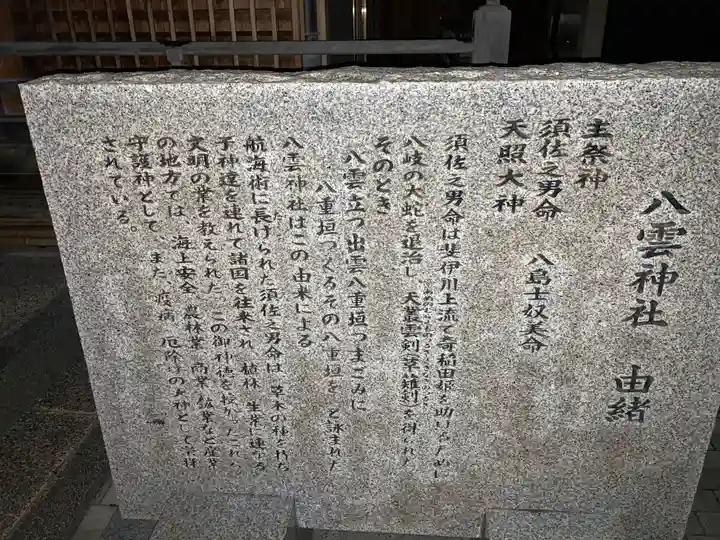 八雲神社 由緒
主祭神
須佐之男命 八島士奴美命
天照大神
須佐之男命は斐伊川上流で奇稲田姫を助けるために
八岐の大蛇を退治し 天叢雲剣(草薙剣)を得られた
そのとき
八雲立つ出雲八重垣つまごみに
八重垣つくるその八重垣を と詠まれた
八雲神社はこの由来による
航海術に長けられた須佐之男命は 草木の種を持ち
子神達を連れて諸国を往来され 植林 生業に連がる
文明の業を教えられた この御神徳を授かったこれら
の地方では 海上安全 農林業 商業 鉱業など産業
守護神として また 疫病 厄除けの大神として
されている。